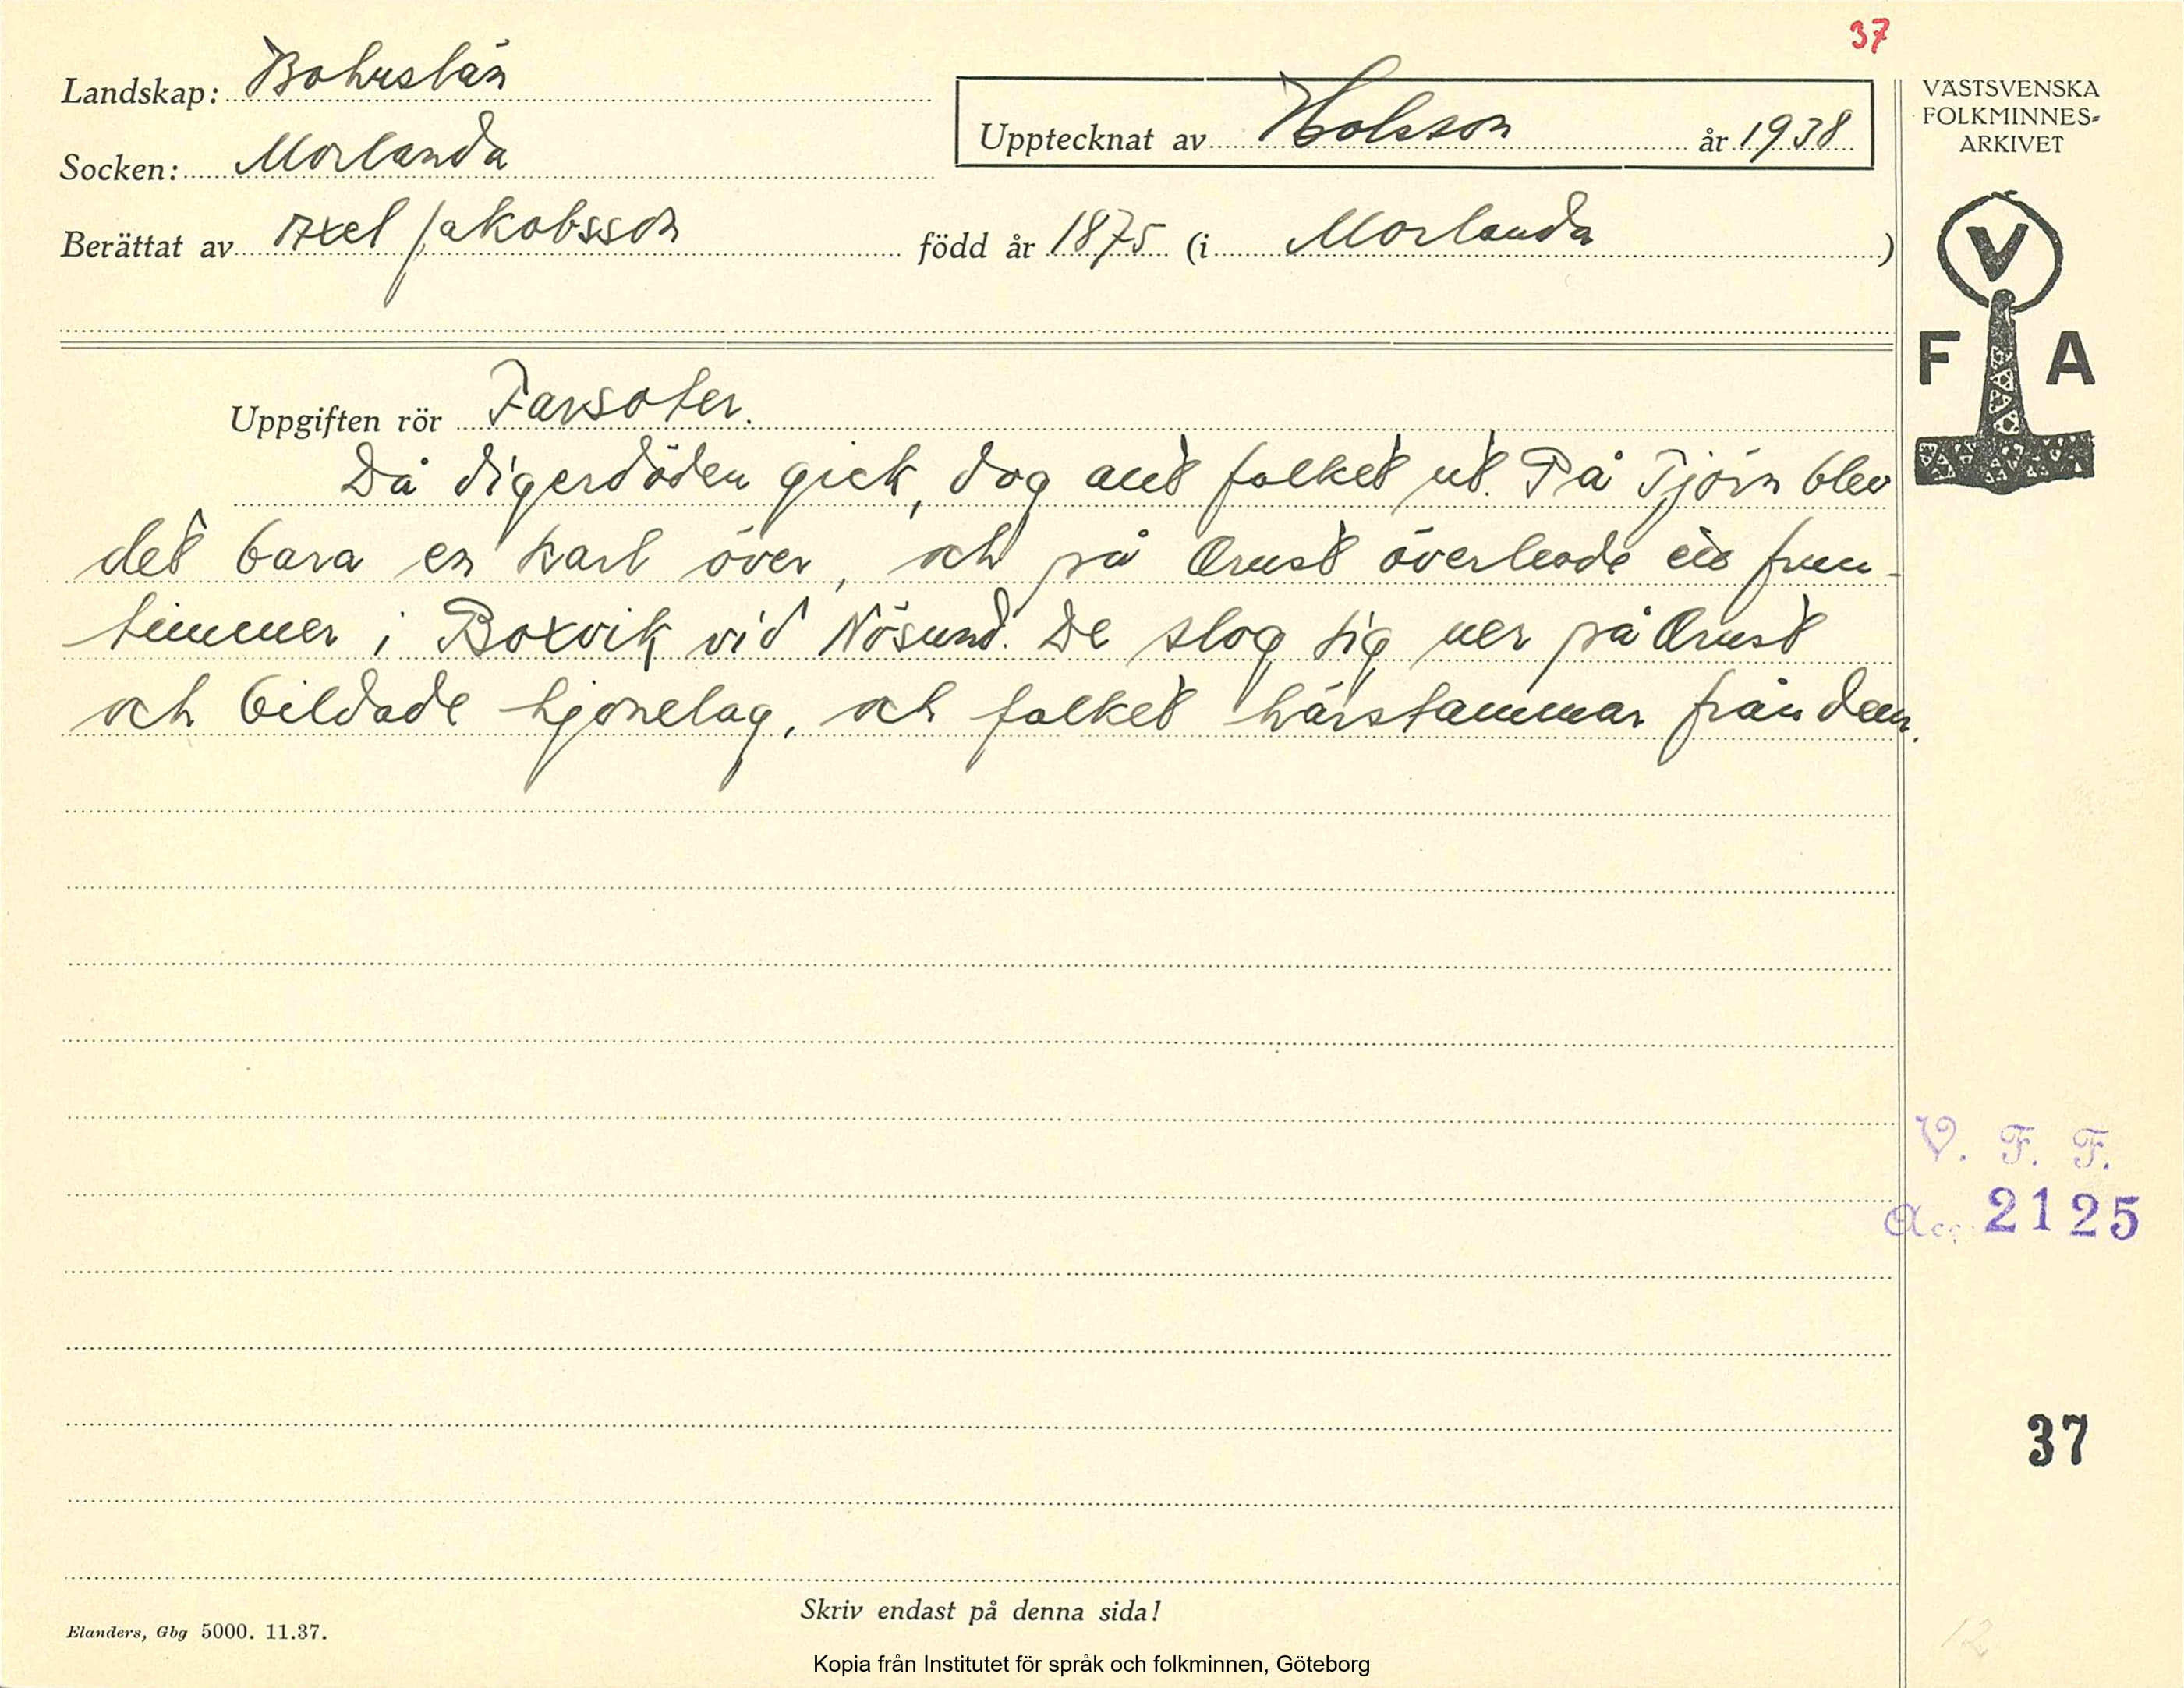 37
Landskap: Bohuslän
Socken: Morlanda
Upptecknat av Holsson år 1938
Berättat av Axel Jakobsson född år 1875 (i Morlanda)
VÄSTSVENSKA
FOLKMINNES-
ARKIVET
V
F A
Uppgiften rör Farsoter.
Då digerdöden gick, dog ant folket ut. På Tjörn blev
det bara en karl över, och på Orust överlevde ett frun-
timmer i Boxvik vid Nösund. De slog sig ner på Orust
och bildade hjonelag, och folket härstammar från dem.
V. F. F.
Acc. 2125
37
Skriv endast på denna sida!
Elanders, Gbg 5000. 11.37.
12
Kopia från Institutet för språk och folkminnen, Göteborg